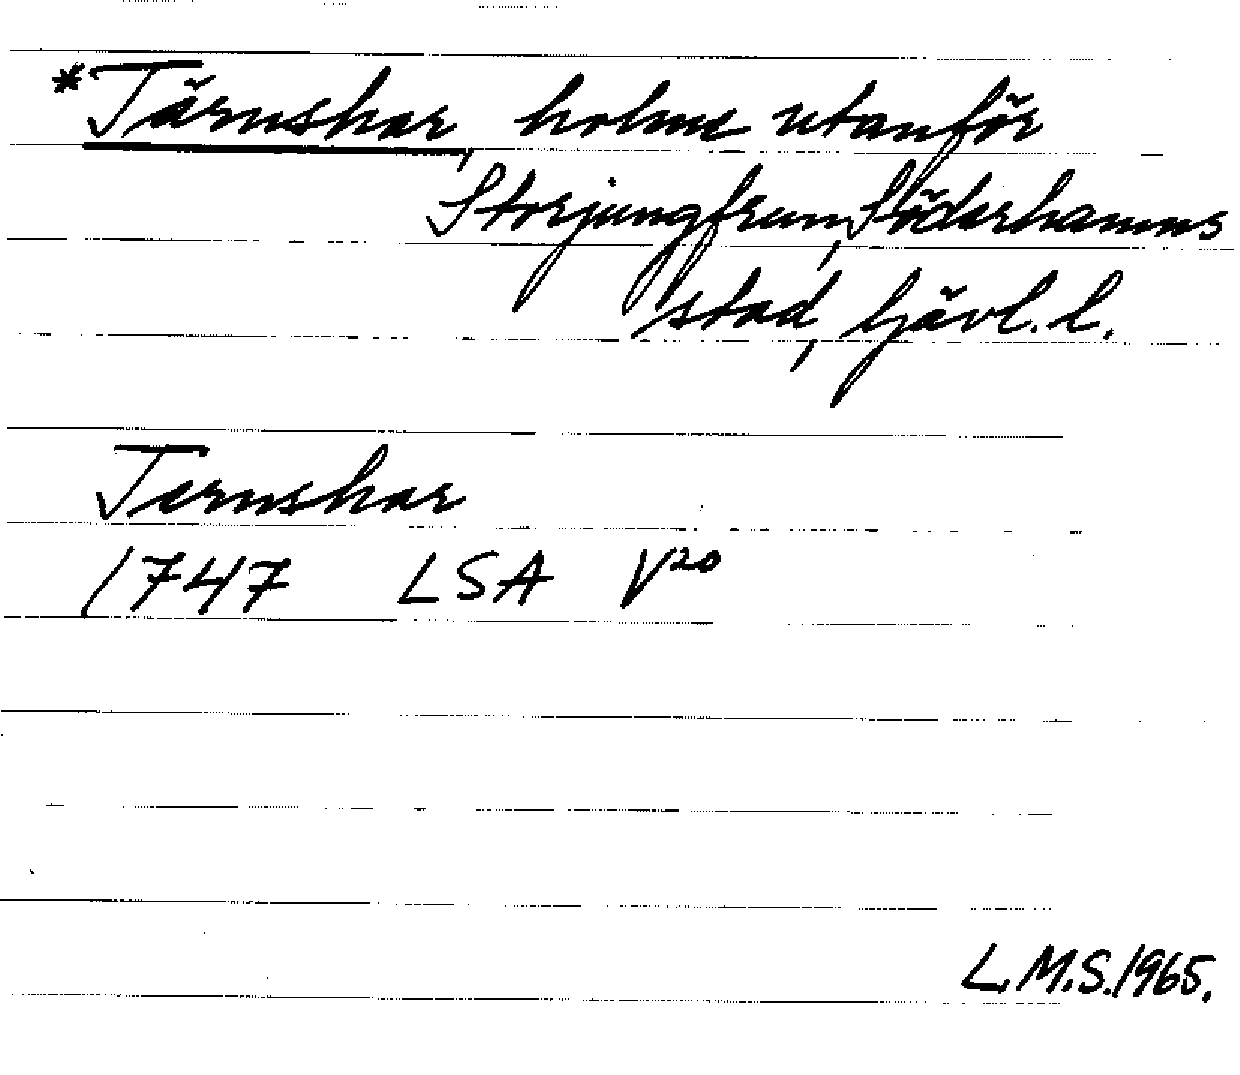 *Tärnskar, holme utanför
Storjungfrun, Söderhamns
stad, Gävl. l.
Ternskar
1747 LSA V20
L.M.S. 1965.